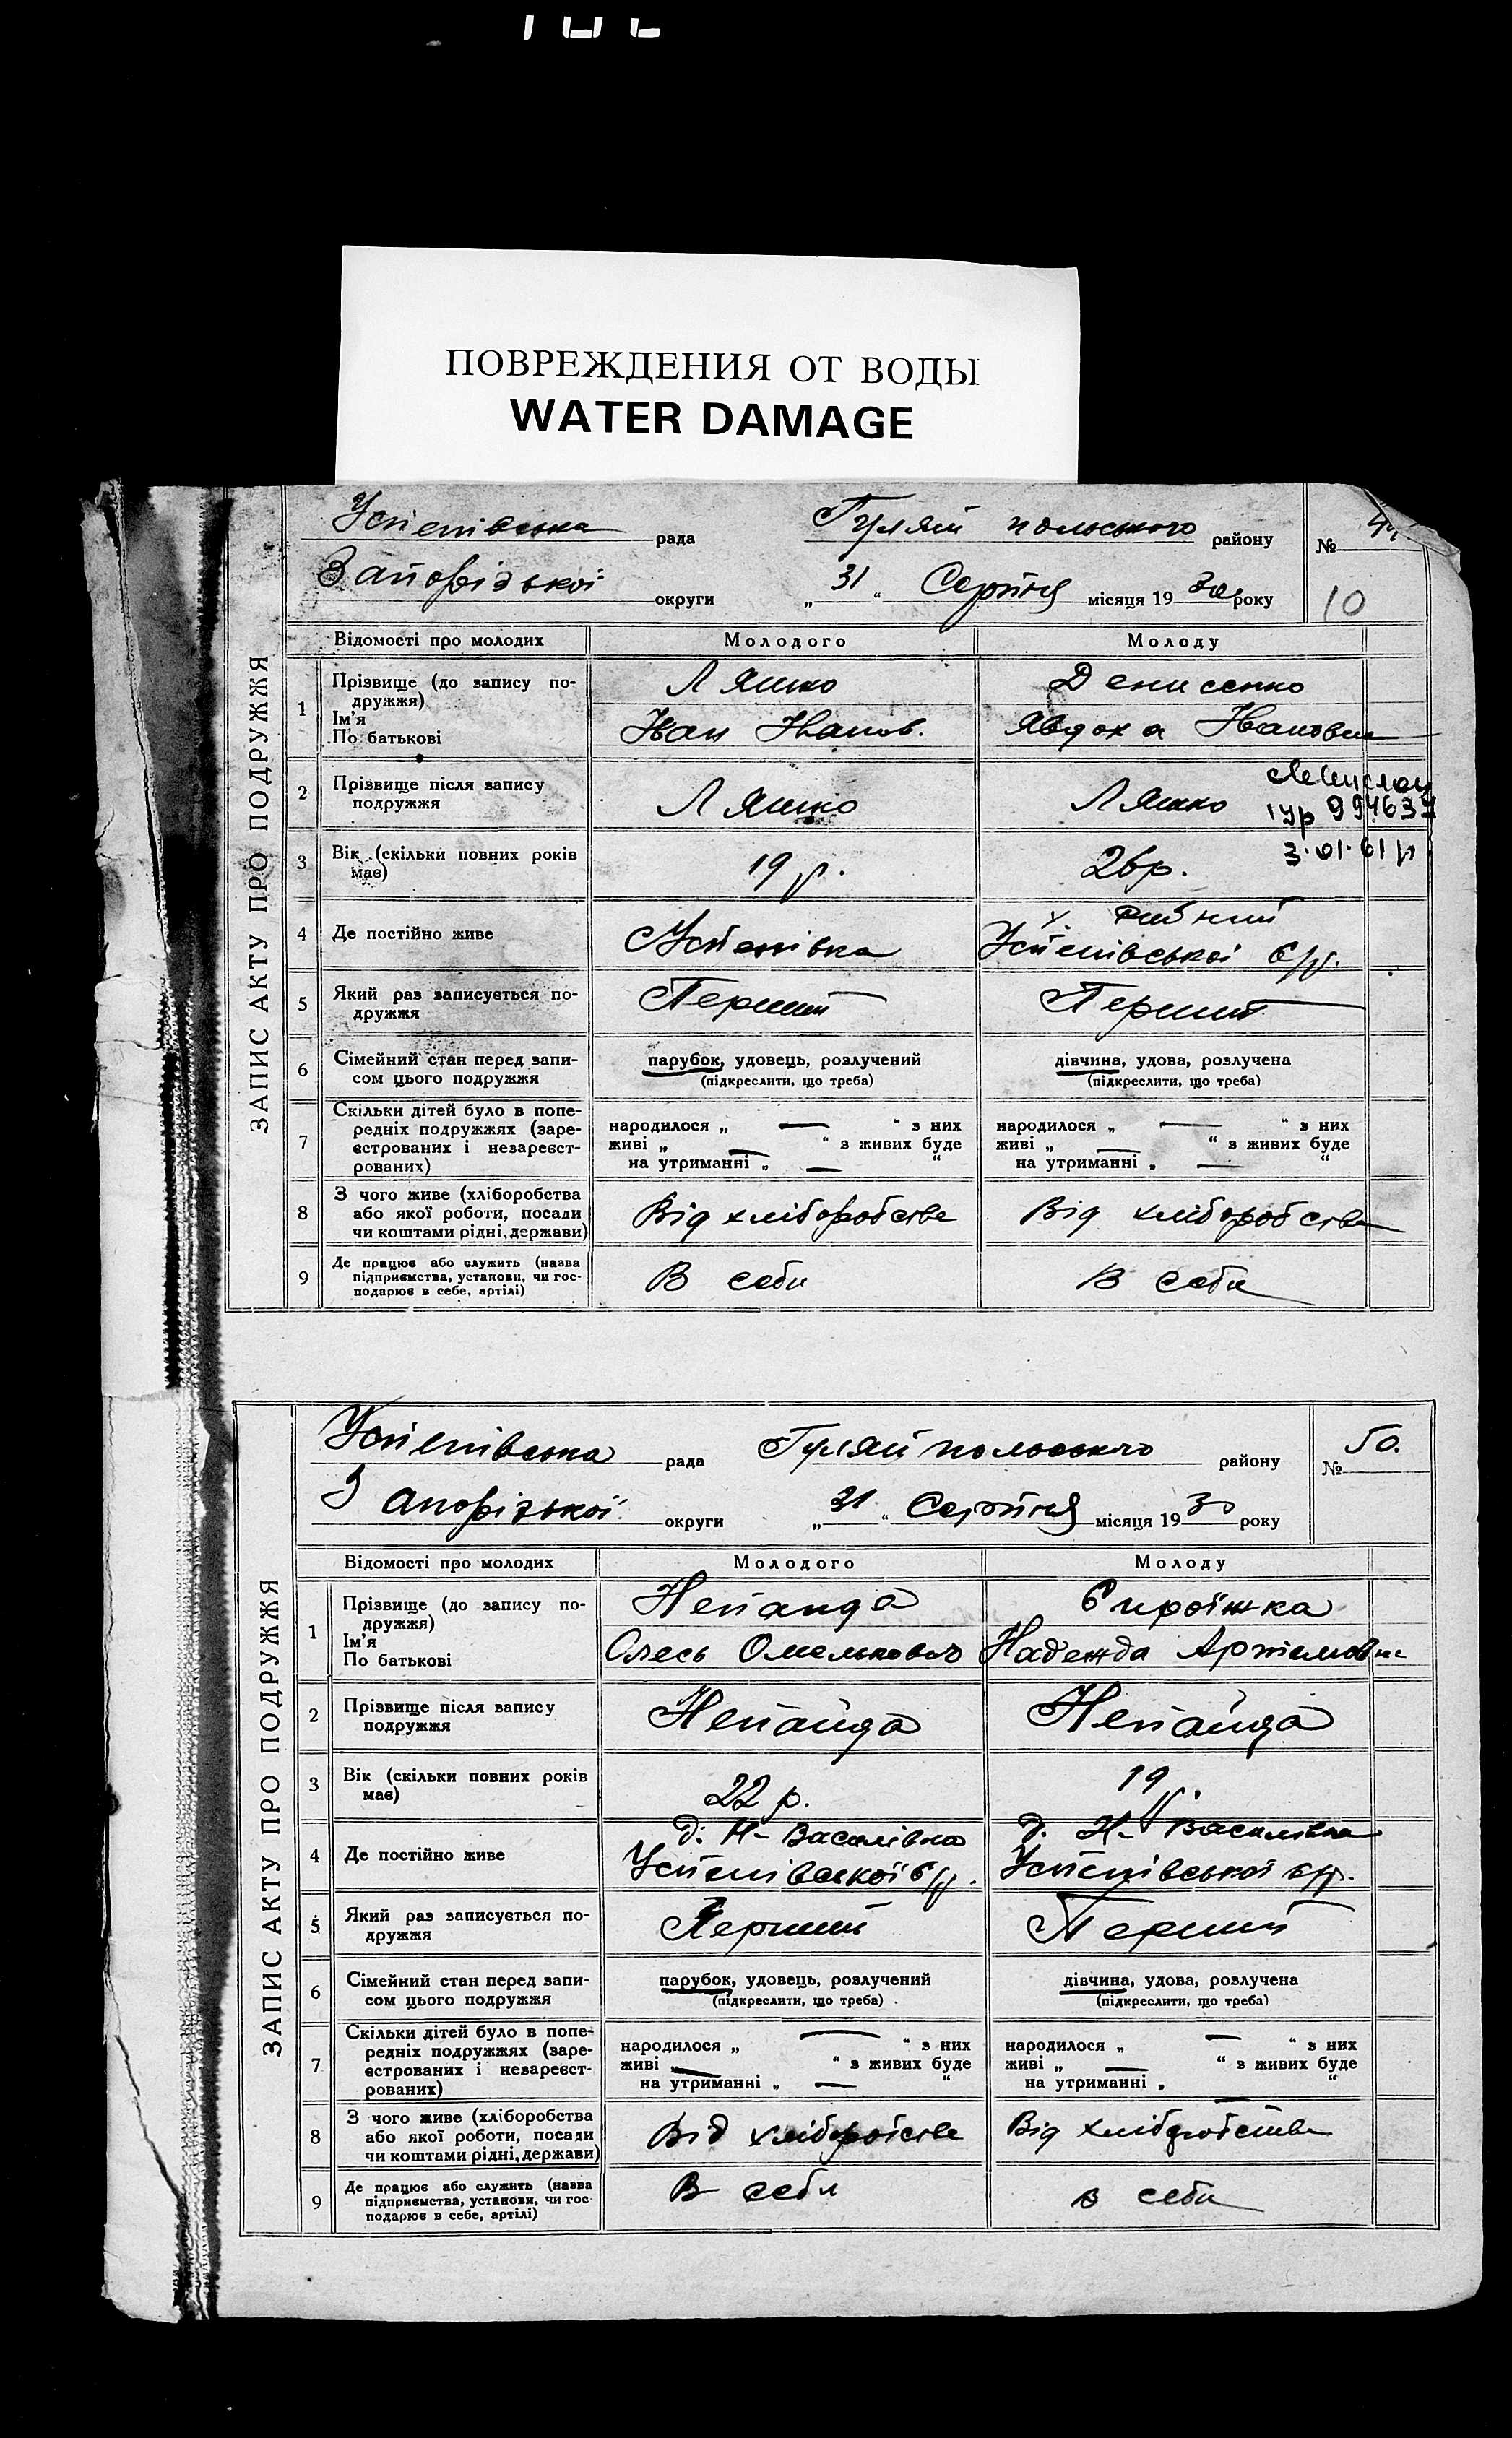 ПОВРЕЖДЕНИЯ ОТ ВОДЫ
WATER DAMAGE
Успенівська рада Гуляй польського району №
Запорізької округи „31“ Серпня місяця 1930 року 10
ЗАПИС АКТУ ПРО ПОДРУЖЖЯ
Відомості про молодих Молодого Молоду
1 Прізвище (до запису по-
дружжя)
Ім'я
По батькові
Ляшко Денисенко
Іван Иванов. Явдоха Ивановна
2 Прізвище після запису
подружжя
Ляшко Ляшко
994637
3.01.61 р.
3 Вік (скільки повних років
має)
19 р. 26 р.
4 Де постійно живе
Успенівка х.
Успенівської с/р.
5 Який раз записується по-
дружжя
Перший Перший
6 Сімейний стан перед запи-
сом цього подружжя
парубок, удовець, розлучений дівчина, удова, розлучена
(підкреслити, що треба) (підкреслити, що треба)
7 Скільки дітей було в попе-
редніх подружжях (заре-
єстрованих і незареєст-
рованих)
народилося „ — “ з них народилося „ — “ з них
живі „ — “ з живих буде живі „ — “ з живих буде
на утриманні „ — “ на утриманні „ — “
8 З чого живе (хліборобства
або якої роботи, посади
чи коштами рідні, держави)
Від хліборобства Від хліборобства
9 Де працює або служить (назва
підприємства, установи, чи гос-
подарює в себе, артілі)
В себи В себи
Успенівська рада Гуляй польського району № 50.
Запорізької округи „31“ Серпня місяця 1930 року
ЗАПИС АКТУ ПРО ПОДРУЖЖЯ
Відомості про молодих Молодого Молоду
1 Прізвище (до запису по-
дружжя)
Ім'я
По батькові
Непайда Сироїжка
Олесь Омелькович Надежда Артемовна
2 Прізвище після запису
подружжя
Непайда Непайда
3 Вік (скільки повних років
має)
22 р. 19 р.
4 Де постійно живе
д. Н-Василівка д. Н-Василівка
Успенівської с/р. Успенівської с/р.
5 Який раз записується по-
дружжя
Перший Перший
6 Сімейний стан перед запи-
сом цього подружжя
парубок, удовець, розлучений дівчина, удова, розлучена
(підкреслити, що треба) (підкреслити, що треба)
7 Скільки дітей було в попе-
редніх подружжях (заре-
єстрованих і незареєст-
рованих)
народилося „ — “ з них народилося „ — “ з них
живі „ — “ з живих буде живі „ — “ з живих буде
на утриманні „ — “ на утриманні „ — “
8 З чого живе (хліборобства
або якої роботи, посади
чи коштами рідні, держави)
Від хліборобства Від хліборобства
9 Де працює або служить (назва
підприємства, установи, чи гос-
подарює в себе, артілі)
В себи В себи